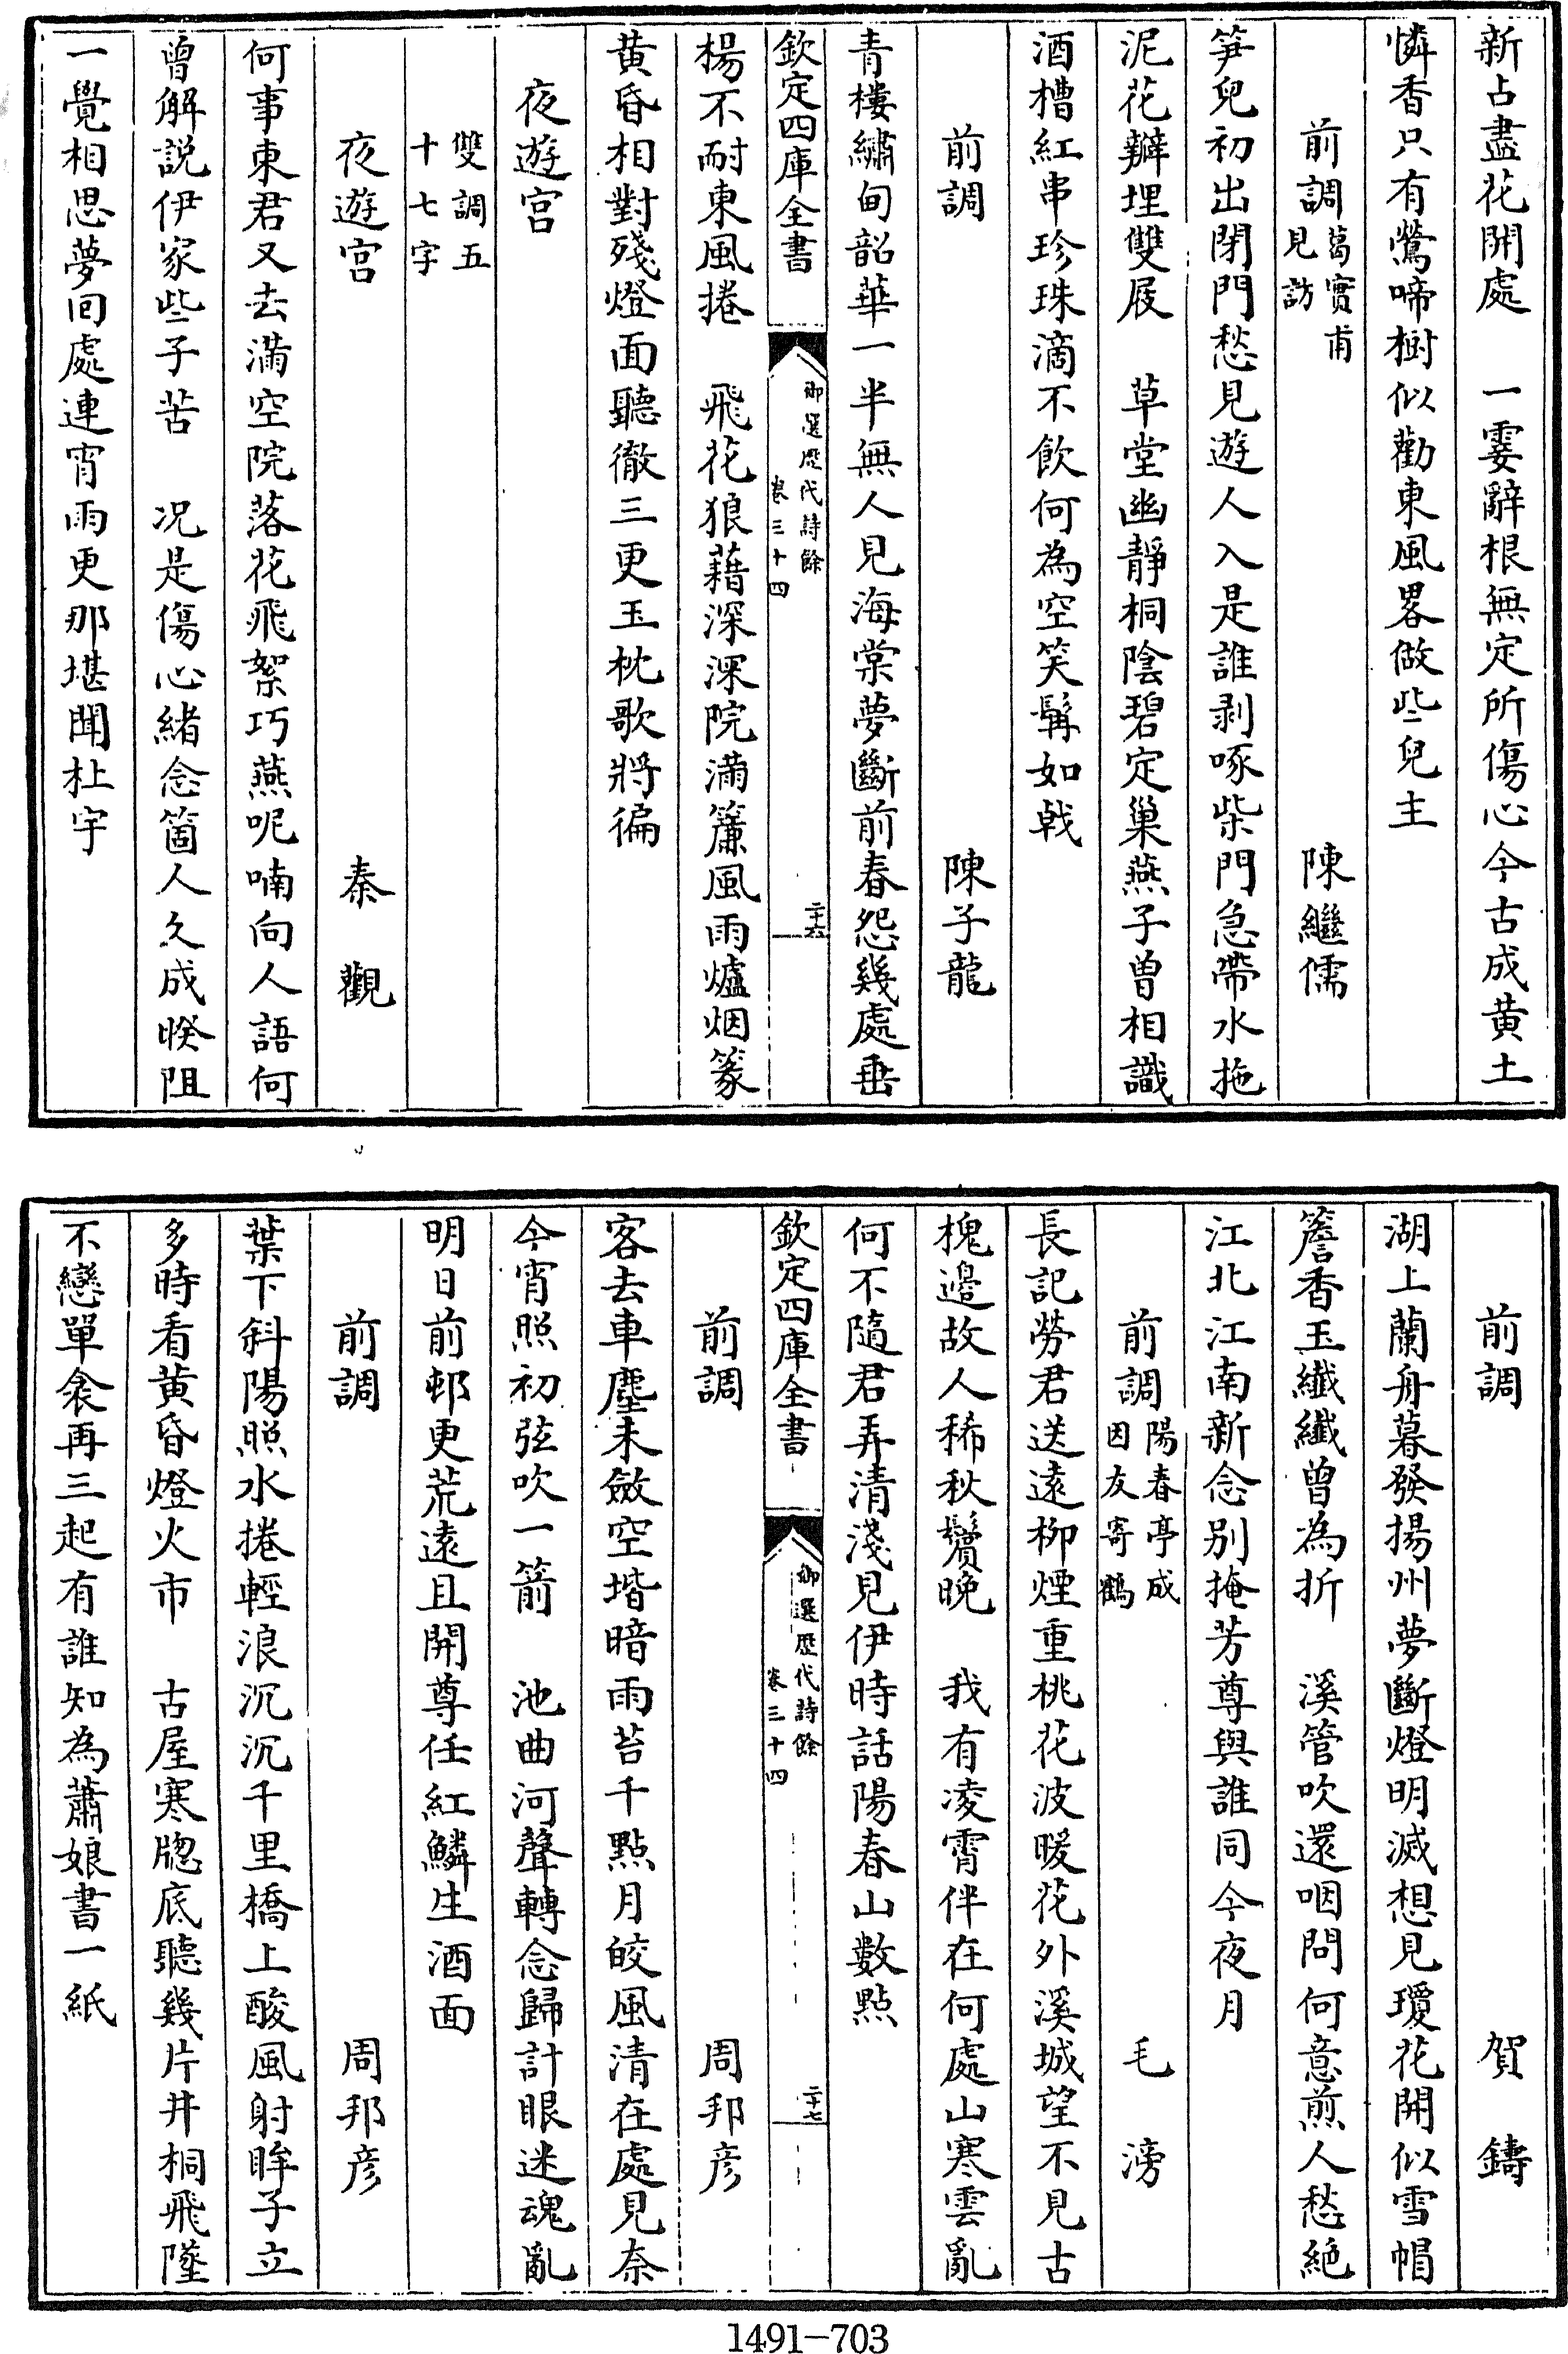 新占盡花開處　一霎辭根無定所傷心今古成黃土
憐香只有鶯啼樹似勸東風畧做些兒主
前調葛實甫見訪　陳繼儒
笋兒初出閉門愁見遊人入是誰剥啄柴門急帶水拖
泥花瓣埋雙屐　草堂幽靜桐陰碧定巢燕子曾相識
酒槽紅串珍珠滴不飲何為空笑髯如戟
前調　陳子龍
青樓繡甸韶華一半無人見海棠夢斷前春怨幾處垂
欽定四庫全書　御選歴代詩餘卷三十四　二十六
楊不耐東風捲　飛花狼藉深深院滿簾風雨爐烟篆
黃昏相對殘燈面聽徹三更玉枕歌將徧
夜遊宫
雙調五十七字
夜遊宫　秦觀
何事東君又去滿空院落花飛絮巧燕呢喃向人語何
曾解説伊家些子苦　况是傷心緒念箇人久成暌阻
一覺相思夢回處連宵雨更那堪聞杜宇
前調　賀鑄
湖上蘭舟暮發揚州夢斷燈明滅想見瓊花開似雪帽
簷香玉纖纖曾為折　溪管吹還咽問何意煎人愁絶
江北江南新念别掩芳尊與誰同今夜月
前調陽春亭成因友寄鶴　毛滂
長記勞君送遠柳煙重桃花波暖花外溪城望不見古
槐邊故人稀秋鬢晚　我有凌霄伴在何處山寒雲亂
何不隨君弄清淺見伊時話陽春山數點
欽定四庫全書　御選歴代詩餘卷三十四　二十七
前調　周邦彦
客去車塵未斂空堦暗雨苔千點月皎風清在處見奈
今宵照初弦吹一箭　池曲河聲轉念歸計眼迷魂亂
明日前邨更荒遠且開尊任紅鱗生酒面
前調　周邦彦
葉下斜陽照水捲輕浪沉沉千里橋上酸風射眸子立
多時看黃昏燈火市　古屋寒牕底聽幾片井桐飛墜
不戀單衾再三起有誰知為蕭娘書一紙
1491—703